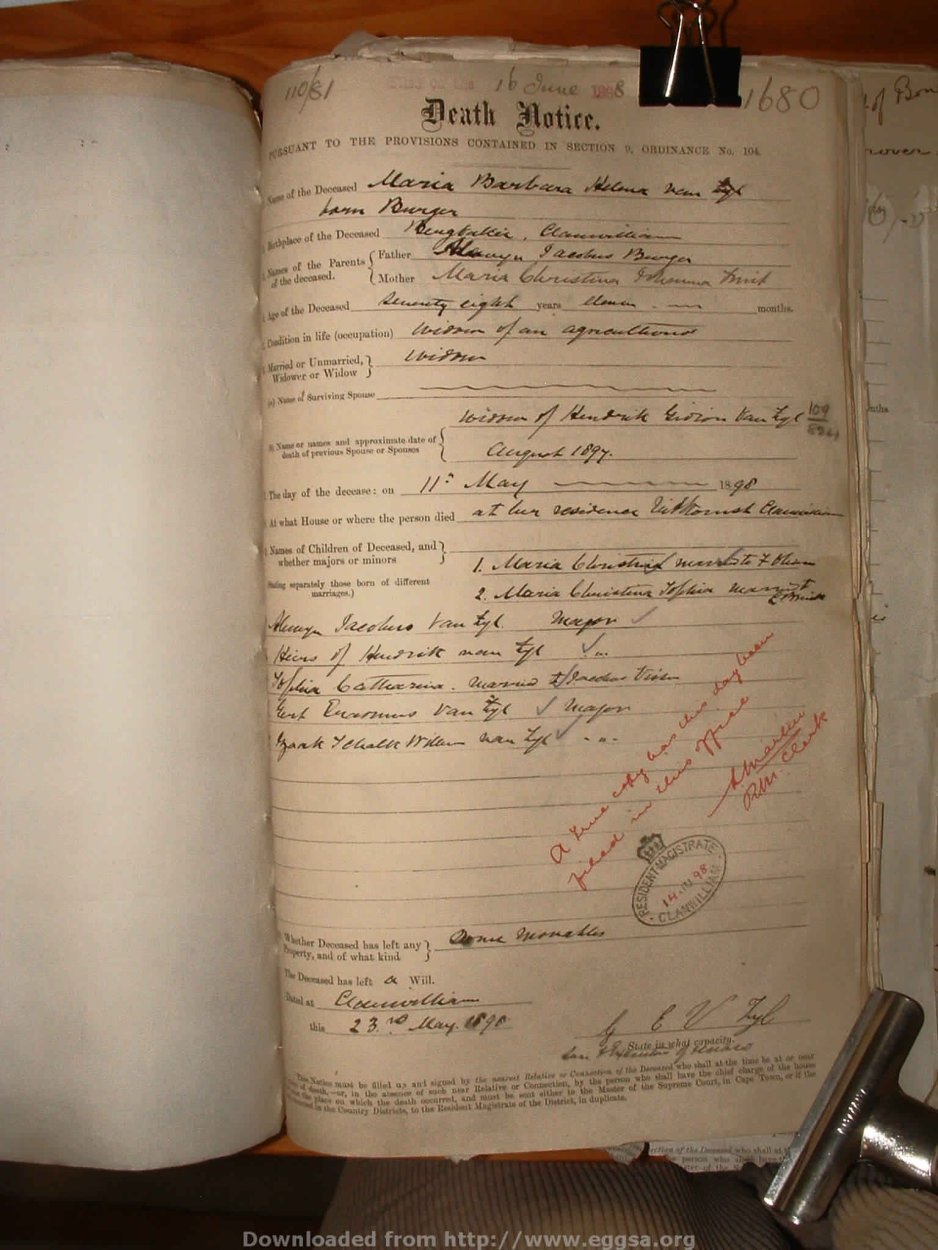 110/81 16 June 1898 1680
Death Notice.
PURSUANT TO THE PROVISIONS CONTAINED IN SECTION 9, ORDINANCE No. 104.
Name of the Deceased Maria Barbara Helena van Zyl
born Burger
Birthplace of the Deceased Clanwilliam
Names of the Parents of the deceased. Father Alewyn Jacobus Burger
Mother Maria Christina Johanna Smit
Age of the Deceased Seventy eight years eleven months.
Condition in life (occupation) Widow of an agriculturist
Married or Unmarried, Widower or Widow Widow
(a) Name of Surviving Spouse
Widow of Hendrik Gidion Van Zyl 109
(b) Name or names and approximate date of death of previous Spouse or Spouses August 1897.
The day of the decease: on 11th May 1898
At what House or where the person died at her residence Uitkomst Clanwilliam
Names of Children of Deceased, and whether majors or minors
1. Maria Christina married to
(Stating separately those born of different marriages.)
2. Maria Christina Sophia married to
Alewyn Jacobus Van Zyl Major
Heirs of Hendrik van Zyl
Sophia Catharina. married to
Gert Erasmus Van Zyl Major
Izaak Schalk Willem van Zyl
A true copy has this day been
filed in this office
R.M. Clerk
RESIDENT MAGISTRATE
14 JU 98
CLANWILLIAM
Whether Deceased has left any Property, and of what kind Some movables
The Deceased has left a Will.
Dated at Clanwilliam
this 23rd May. 1898
G E V Zyl
State in what capacity.
Son & Executor
This Notice must be filled up and signed by the nearest Relative or Connection of the Deceased who shall at the time be at or near
the place of death,—or, in the absence of such near Relative or Connection, by the person who shall have the chief charge of the house
or the place on which the death occurred, and must be sent either to the Master of the Supreme Court, in Cape Town, or if the
in the Country Districts, to the Resident Magistrate of the District, in duplicate.
Downloaded from http://www.eggsa.org